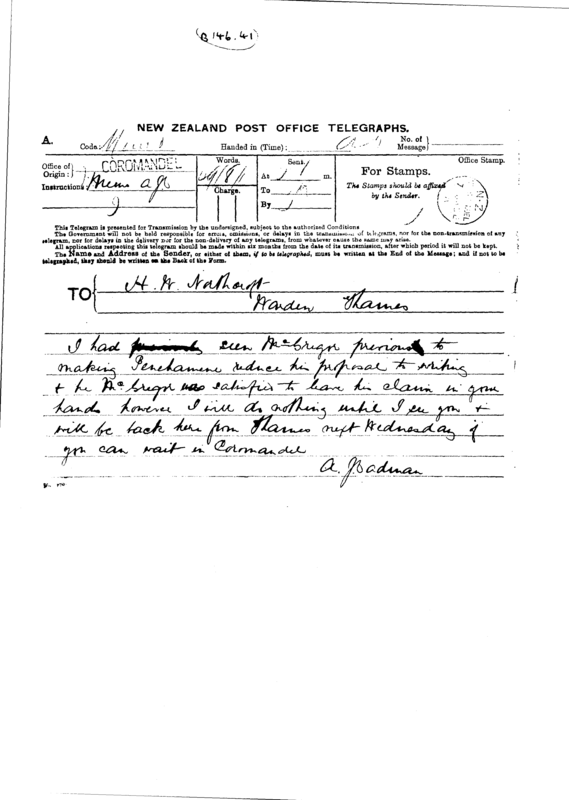 (B 146.41)
NEW ZEALAND POST OFFICE TELEGRAPHS.
A.
Code:
Handed in (Time):
No. of Message
Office of Origin:
COROMANDEL
Words.
Sent.
At m.
For Stamps.
Office Stamp.
Instructions:
Charge.
To
By
The Stamps should be affixed
by the Sender.
N.Z.
This Telegram is presented for Transmission by the undersigned, subject to the authorized Conditions
The Government will not be held responsible for errors, omissions, or delays in the transmission of telegrams, nor for the non-transmission of any
telegram, nor for delays in the delivery nor for the non-delivery of any telegrams, from whatever cause the same may arise.
All applications respecting this telegram should be made within six months from the date of its transmission, after which period it will not be kept.
The Name and Address of the Sender, or either of them, if to be telegraphed, must be written at the End of the Message; and if not to be
telegraphed, they should be written on the Back of the Form.
TO H. W.
Warden Thames
I had seen McGregor previous to
making reduce his proposal to writing
& he McGregor was satisfied to leave his claim in your
hands however I will do nothing until I see you &
will be back here from Thames next Wednesday if
you can wait in Coromandel
A. J. Cadman